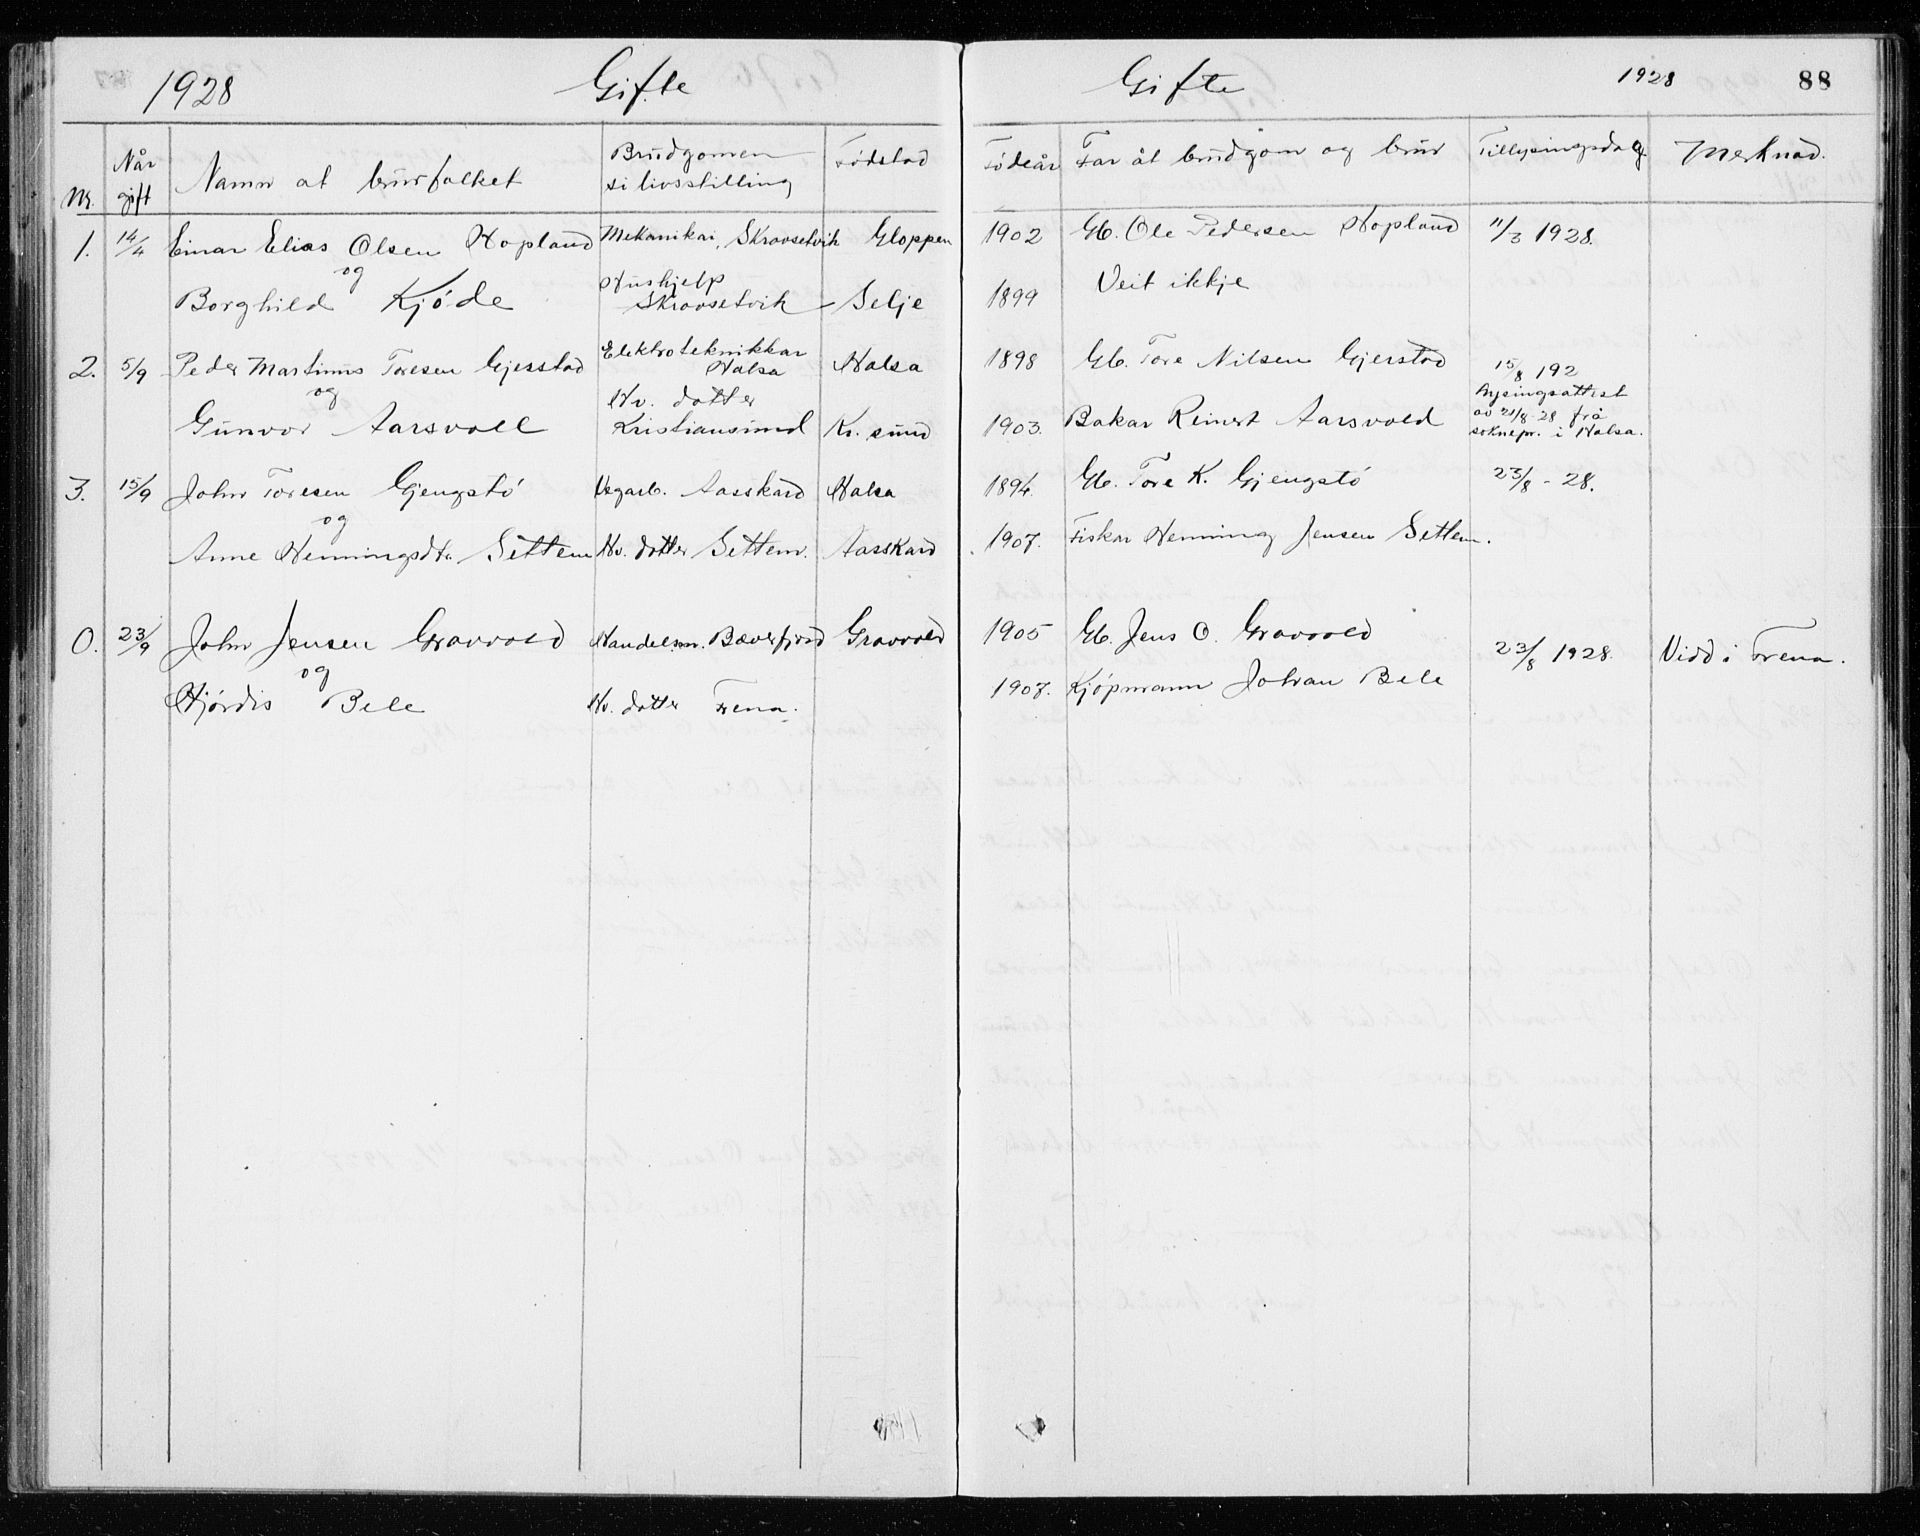 1928 Gifte Gifte 1928 88
Nr. Når gift Namn at brurfolket Brudgomen si livsstilling Fødstad Fødeår Far åt brudgom og brur Tillysingsdag. Merknad.
1. 14/4 Einar Elias Olsen Hopland Mekanikar, Skravsetvik Gloppen 1902 Gb. Ole Pedersen Hopland 11/3 1928.
og
Borghild Kjøde Hushjelp Skravsetvik Selje 1899 Veit ikkje
2. 5/9 Peder Martinus Toresen Gjerstad Elektroteknikkar Halsa Halsa 1898 Gb. Tore Nilsen Gjerstad 15/8 192
og
Gunvor Aarsvoll Hv. dotter Kristiansund Kr. sund 1903. Bakar Reinert Aarsvold lysingsattest av 21/8-28 frå soknepr. i Halsa.
3. 15/9 John Toresen Gjengstø Vegarb. Aasskard Halsa 1894. Gb. Tore K. Gjengstø 23/8 - 28.
og
Anne Henningsdtr. Settem Hv. dotter Settem. Aasskard 1907. Fiskar Henning Jensen Settem.
0. 23/9 John Jensen Gravvold Handelsm. Bæverfjord Gravvold 1905 Gb. Jens O. Gravvold 23/8 1928. Vidd i Frena.
og
Hjørdis Bele Hv. dotter Frena. 1907. Kjøpmann Johan Bele